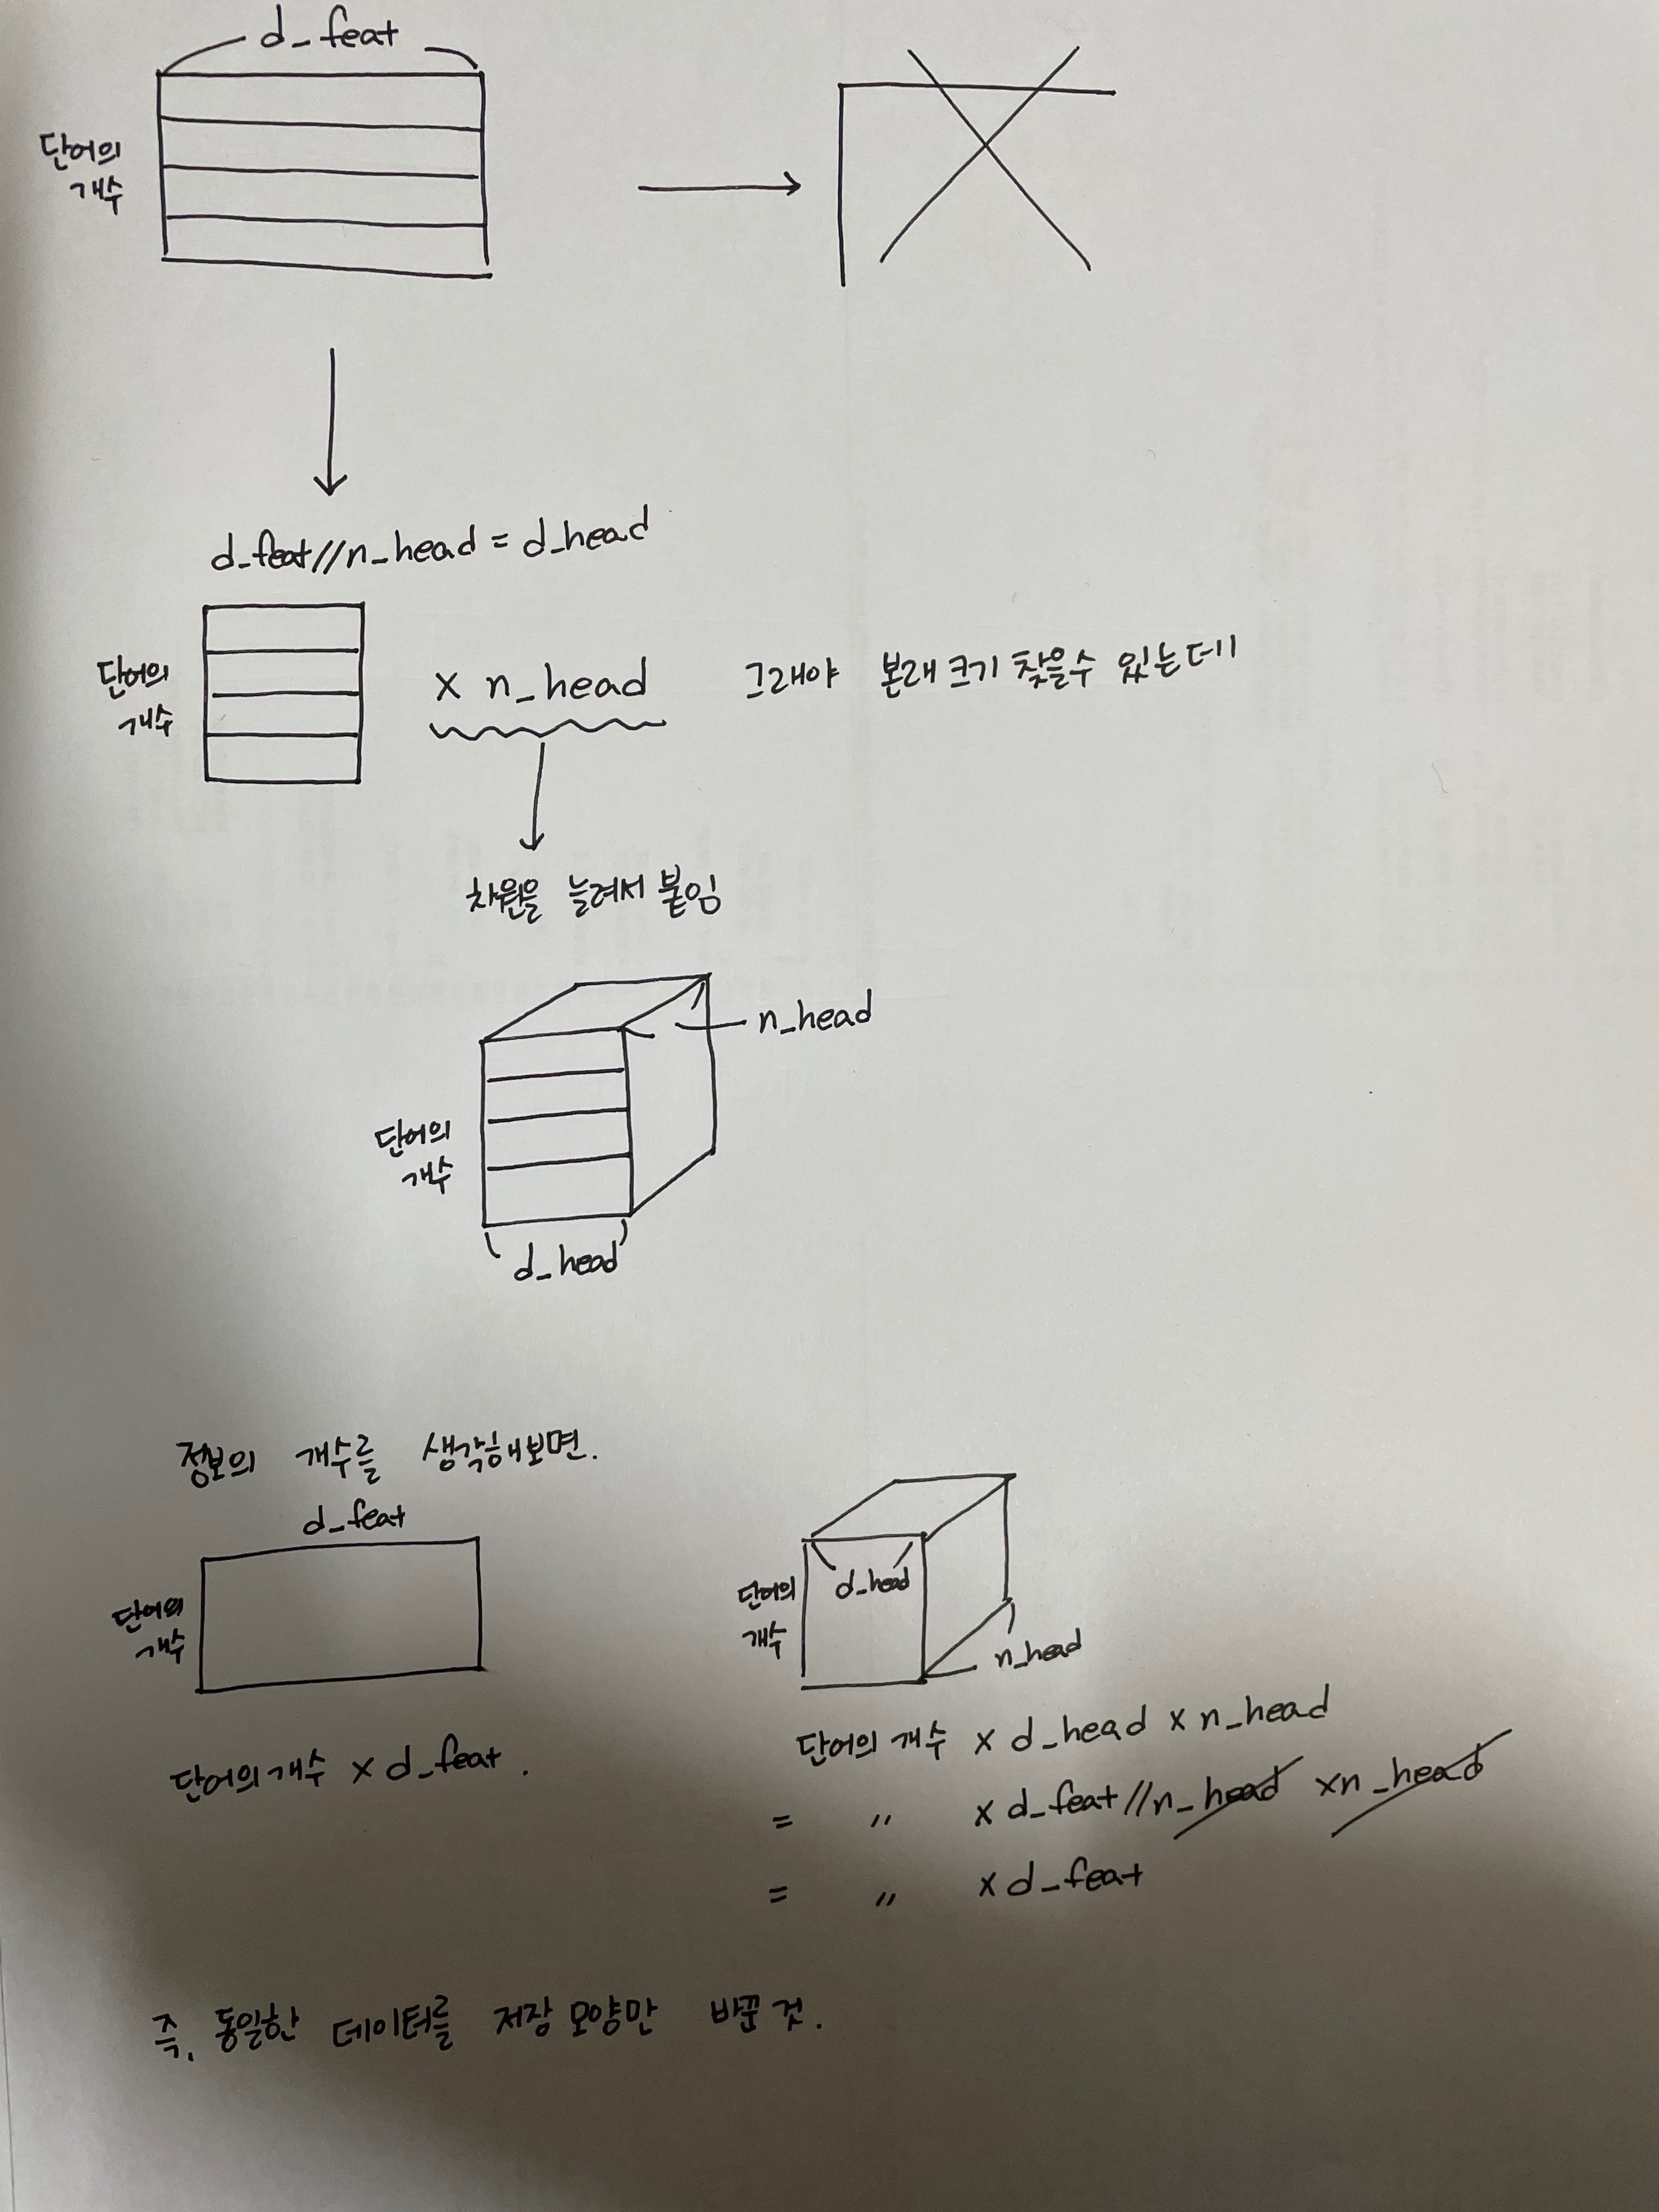 d_feat
단어의
개수
d_feat//n_head = d_head
단어의
개수
x n_head 그래야 본래 크기 찾을수 있는데!
차원을 늘려서 붙임
n_head
단어의
개수
d_head
정보의 개수를 생각해보면.
d_feat
단어의
개수
단어의 개수 x d_feat.
d_head
단어의
개수
n_head
단어의 개수 x d_head x n_head
= 〃 x d_feat//n_head x n_head
= 〃 x d_feat
즉, 동일한 데이터를 저장 모양만 바꾼 것.